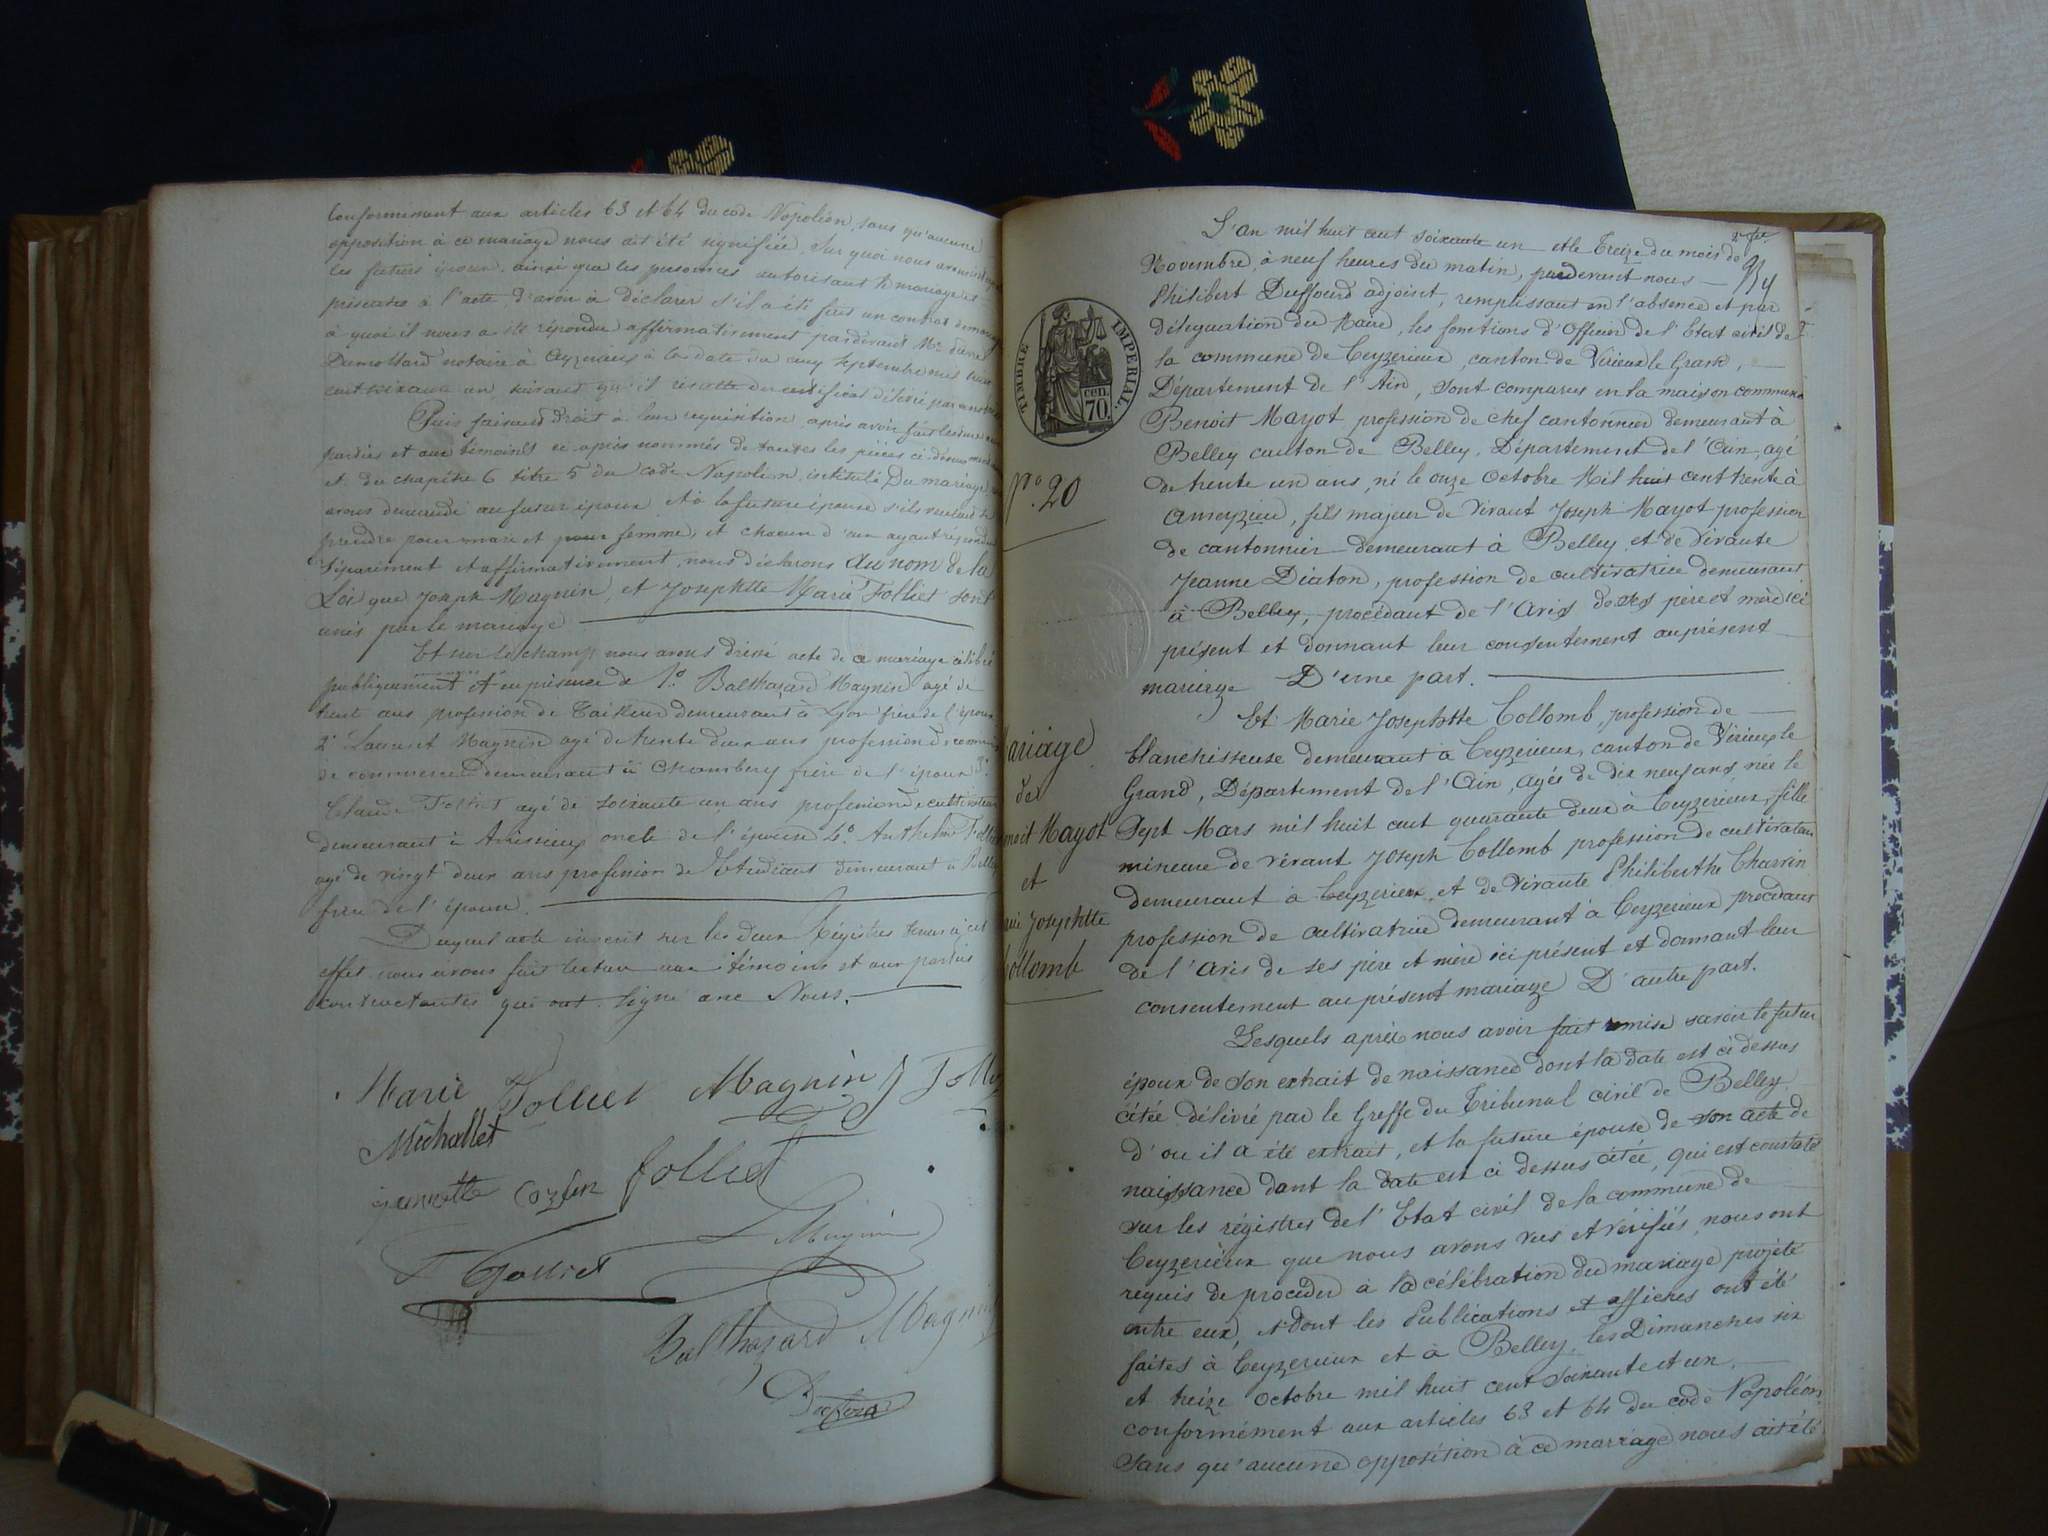 Conformément aux articles 63 et 64 du code Napoléon, sans qu'aucune
opposition à ce mariage nous ait été signifiée, Sur quoi nous avons
les futurs époux, ainsi que les personnes autorisant le mariage et
présentes à l'acte d'avoir à déclarer s'il a été fait un contrat de mariage
à quoi il nous a été répondu affirmativement pardevant Me
notaire à Ceyzerieux à la date du cinq Septembre mil huit
cent soixante un, suivant qu'il résulte du certificat délivré par
Puis faisant droit à leur réquisition, après avoir fait lecture aux
parties et aux témoins ci après nommés de toutes les pièces ci dessus
et du chapitre 6 titre 5 du code Napoléon, intitulé Du mariage
avons demandé au futur époux et à la future épouse s'ils veulent se
prendre pour mari et pour femme, et chacun d'eux ayant répondu
séparément et affirmativement, nous déclarons au nom de la
Loi que Joseph Magnin, et Josephtte Marie Folliet sont
unis par le mariage
Et sur le champ nous avons dressé acte de ce mariage célébré
publiquement et en présence de 1.º Balthazard Magnin agé de
ans profession de Tailleur demeurant à Lyon frère de l'époux
2º Laurent Magnin agé de trente deux ans profession de
de commerce demeurant à Chambery frère de l'époux 3º
Claude Folliet agé de soixante un ans profession de cultivateur
demeurant à oncle de l'épouse 4.º Anthelme Folliet
agé de vingt deux ans profession de Etudiant demeurant à Belley
frère de l'épouse.
Duquel acte inscrit sur les deux Régistres tenus à cet
effet nous avons fait lecture aux témoins et aux parties
contractantes qui ont signé avec Nous.
Marie Folliet Magnin J Folliet
Michallet
Jeannette Folliet
Magnin
Folliet
Balthazard Magnin
L'an mil huit cent soixante un et le Treize du mois de
Novembre, à neuf heures du matin, pardevant nous
Philibert Duffourd adjoint, remplissant en l'absence et par
délégation du Maire, les fonctions d'Officier de l'Etat civil de
la commune de Ceyzerieux, canton de Virieux le Grand,
Département de l'Ain, sont comparus en la maison commune
TIMBRE IMPERIAL.
CEN.
70.
Benoit Mayot profession de chef cantonnier demeurant à
Belley canton de Belley, Département de l'Ain, agé
de trente un ans, né le onze Octobre Mil huit cent trente à
Ameyzieu, fils majeur de vivant Joseph Mayot profession
de cantonnier demeurant à Belley, et de vivante
Jeanne Diaton, profession de cultivatrice demeurant
à Belley, procédant de l'avis de ses père et mère ici
présent et donnant leur consentement au présent
mariage D'une part.
Nº. 20
Mariage
de
Benoit Mayot
et
Marie Josephtte
Collomb
Et Marie Josephtte Collomb, profession de
blanchisseuse demeurant à Ceyzerieux, canton de Virieux le
Grand, Département de l'Ain, agée de dix neuf ans, née le
Sept Mars mil huit cent quarante deux à Ceyzerieux, fille
mineure de vivant Joseph Collomb profession de cultivateur
demeurant à Ceyzerieux, et de vivante Philiberthe Charvin
profession de cultivatrice demeurant à Ceyzerieux procédant
de l'avis de ses père et mère ici présent et donnant leur
consentement au présent mariage D'autre part.
Lesquels après nous avoir fait remise savoir le futur
époux de son extrait de naissance dont la date est ci dessus
citée délivré par le Greffe du Tribunal civil de Belley
d'ou il a été extrait, et la future épouse de son acte de
naissance dont la date est ci dessus citée, qui est constaté
sur les régistres de l'Etat civil de la commune de
Ceyzerieux que nous avons vus et vérifiés, nous ont
requis de procéder à la célébration du mariage projeté
entre eux, et dont les Publications et affiches ont été
faites à Ceyzerieux et à Belley, les Dimanches six
et treize Octobre mil huit cent soixante et un,
conformément aux articles 63 et 64 du code Napoléon,
Sans qu'aucune opposition à ce mariage nous ait été